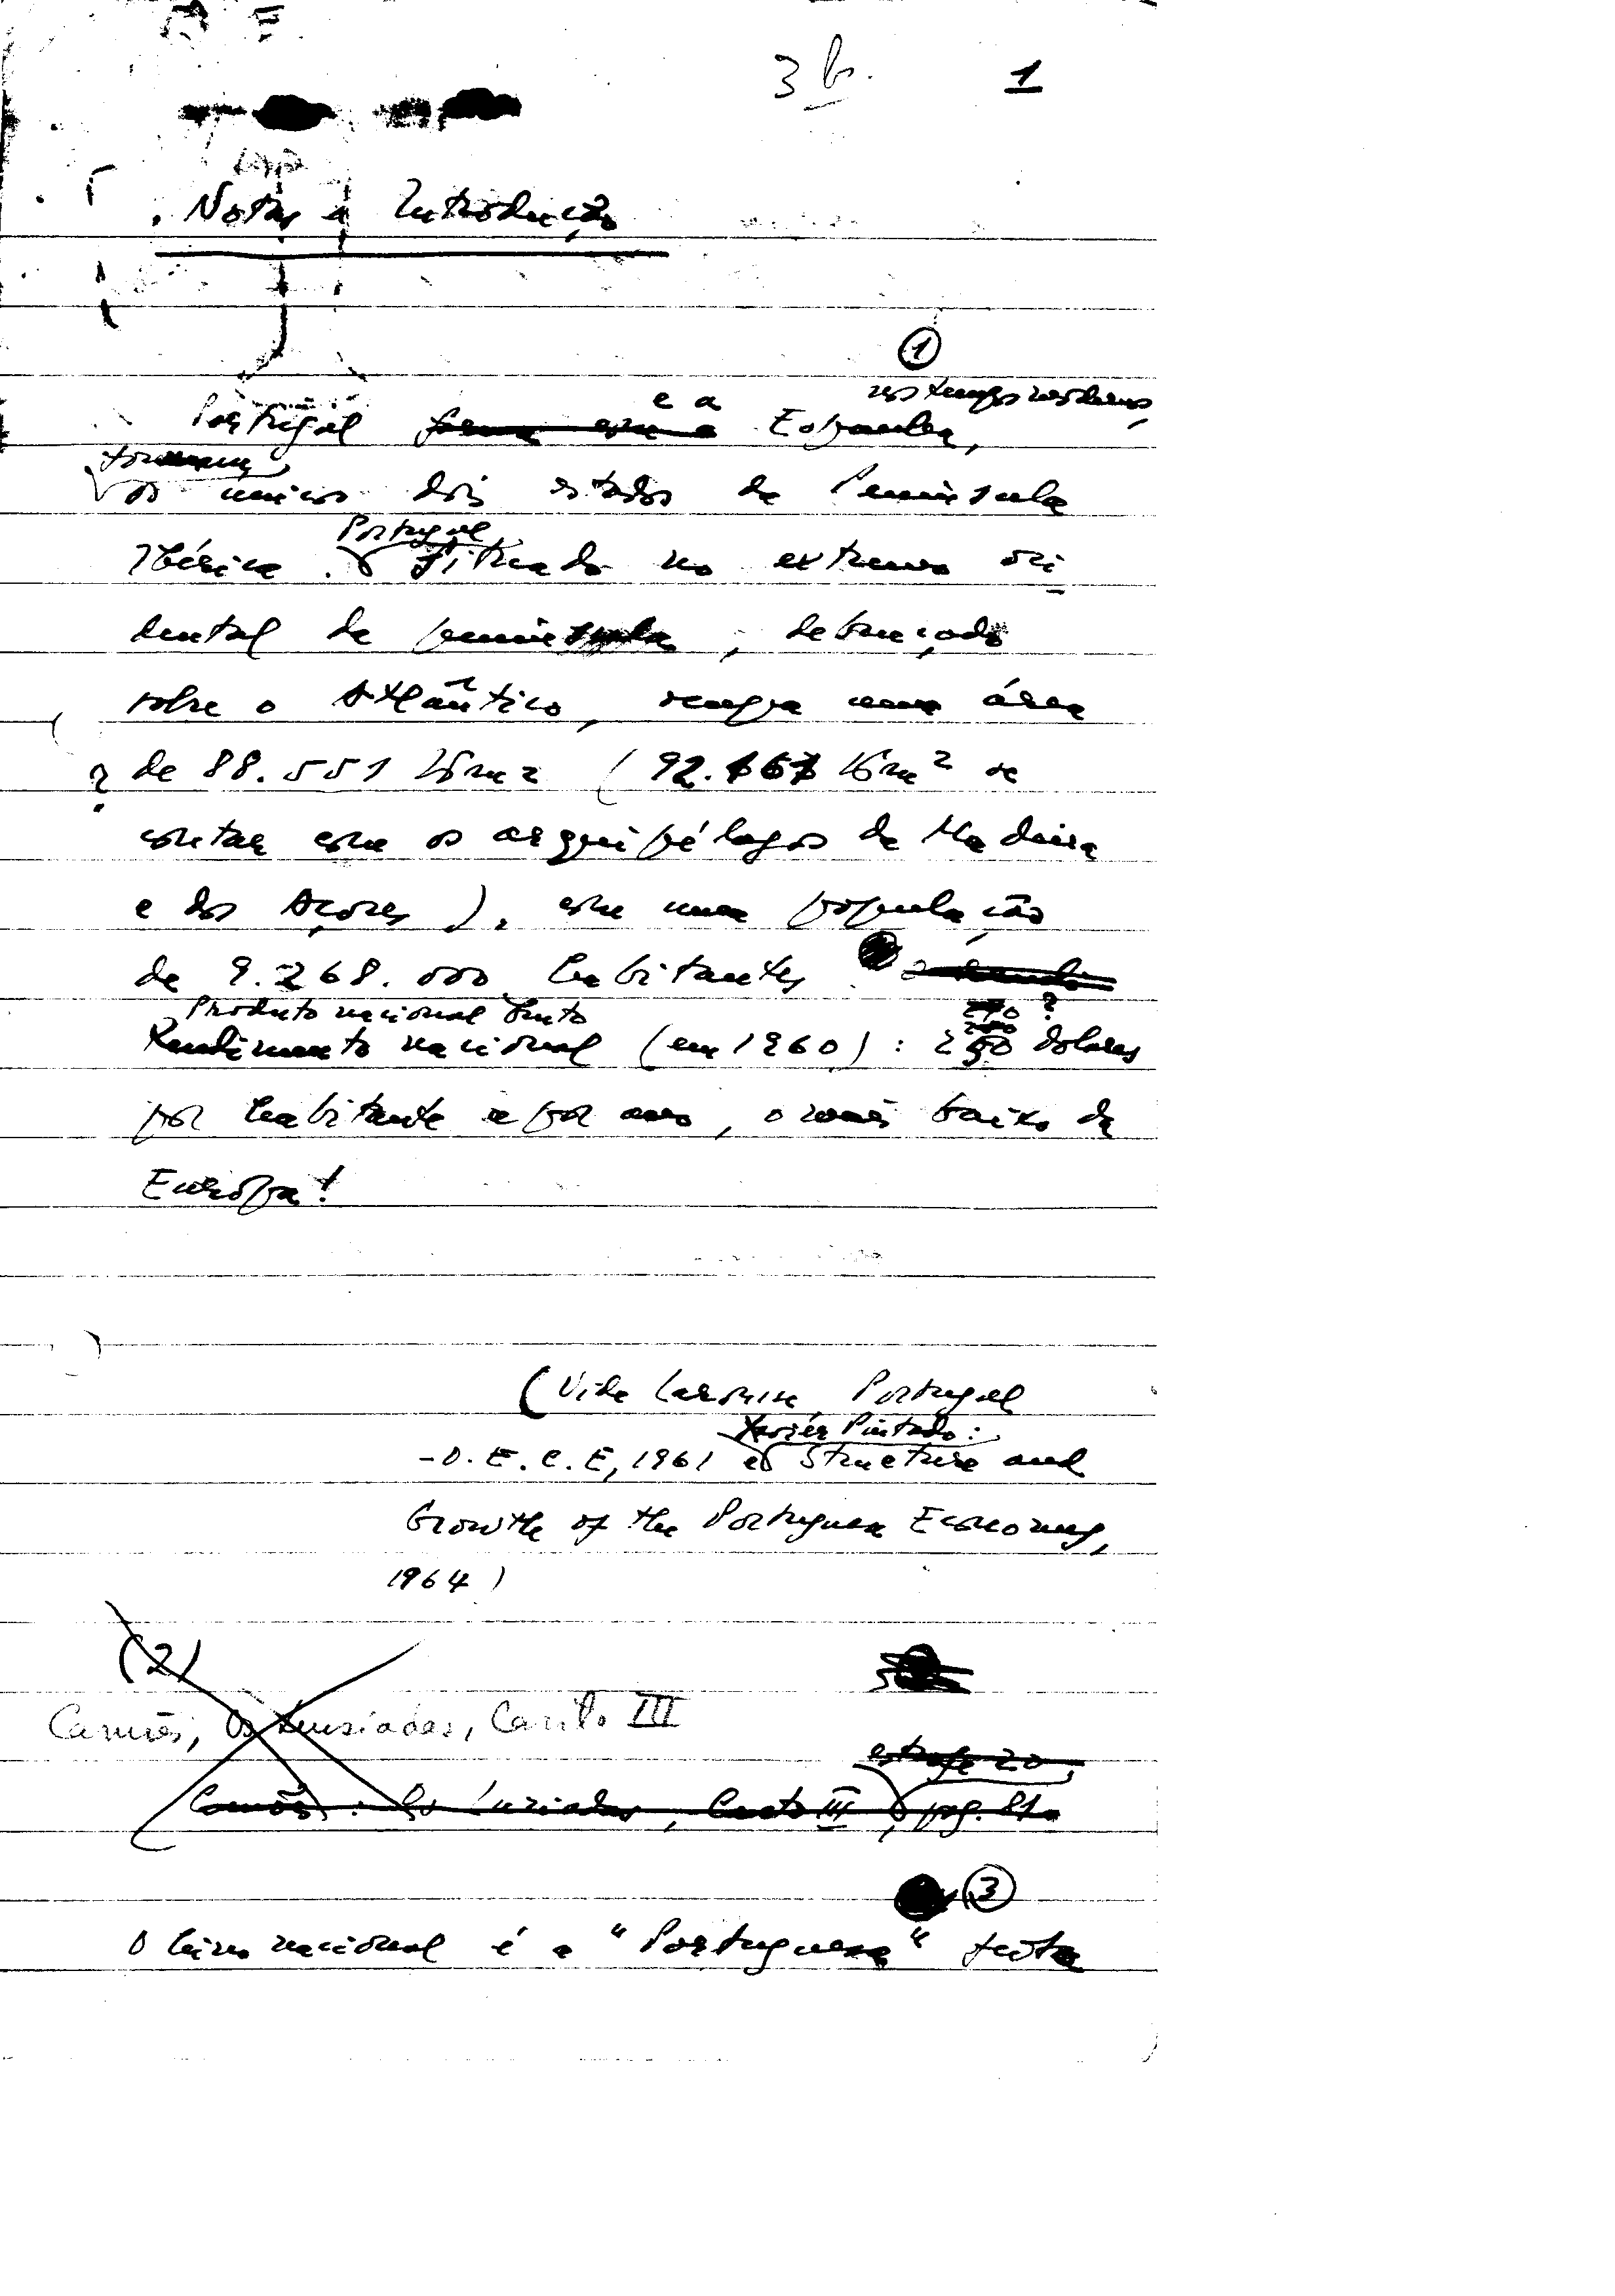 3 b. 1
Notas à Introdução
1
e a nos tempos modernos,
Portugal forma com a Espanha,
formam
os unicos dois estados da Peninsula
Portugal
Ibérica. Situado no extremo oci
dental da peninsula, debruçado
sobre o Atlântico, ocupa uma área
? de 88.551 Km2 (92.167 Km2 se
contar com os arquipélagos da Madeira
e dos Açores), com uma população
de 9.268.000 habitantes
Produto nacional bruto ?
Rendimento nacional (em 1960): 290 dolares
por habitante e por ano, o mais baixo da
Europa!
(Vide Larousse, Portugal
Xavier Pintado:
-O.E.C.E, 1961 e Structure and
Growth of the Portuguese Economy,
1964)
(2)
Camões, Os Lusiadas, Canto III
estrofe 20,
Camões: Os Lusiadas, Canto III, pag. 81.
3
O hino nacional é a "Portuguesa" feita